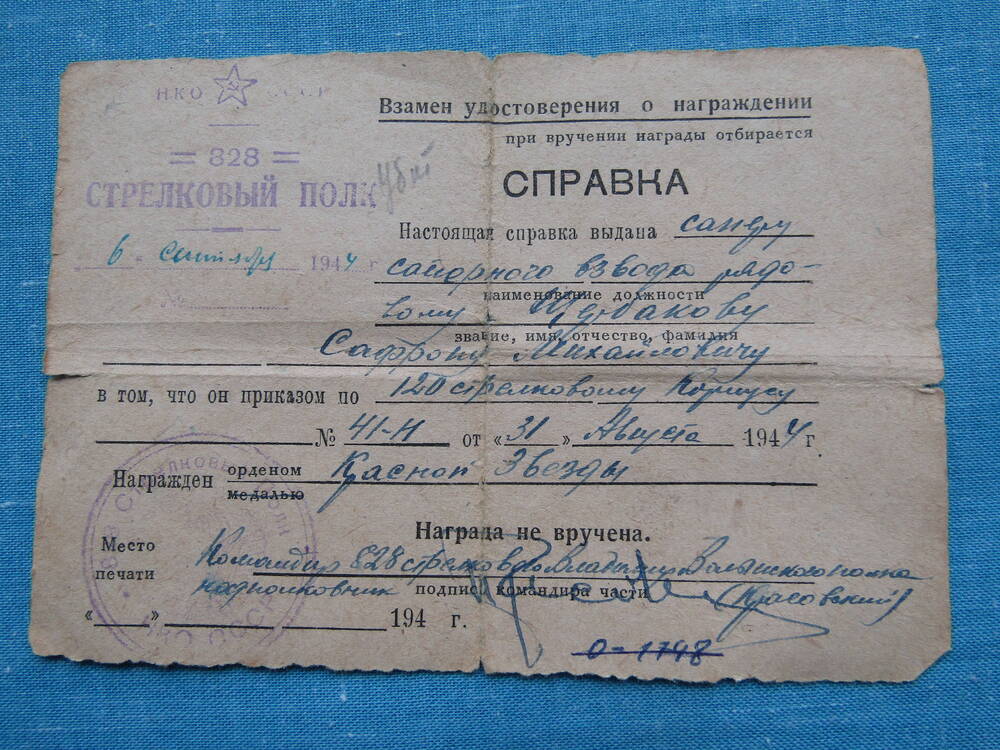 НКО СССР
= 828 =
СТРЕЛКОВЫЙ ПОЛК
6 сентября 1944 г
№
Взамен удостоверения о награждении
при вручении награды отбирается
СПРАВКА
Настоящая справка выдана саперу
саперного взвода рядо-
наименование должности
вому Щербакову
звание, имя, отчество, фамилия
Сафрону Михайловичу
в том, что он приказом по 120 стрелковому Корпусу
№ 41-Н от «31» Августа 1944 г
Награжден орденом Красной Звезды
медалью
Награда не вручена.
Место
печати
Командир 828 стрелкового Владимир Волынского полка
подполковник подпись командира части (Красовский)
« » 194 г.
0-1798